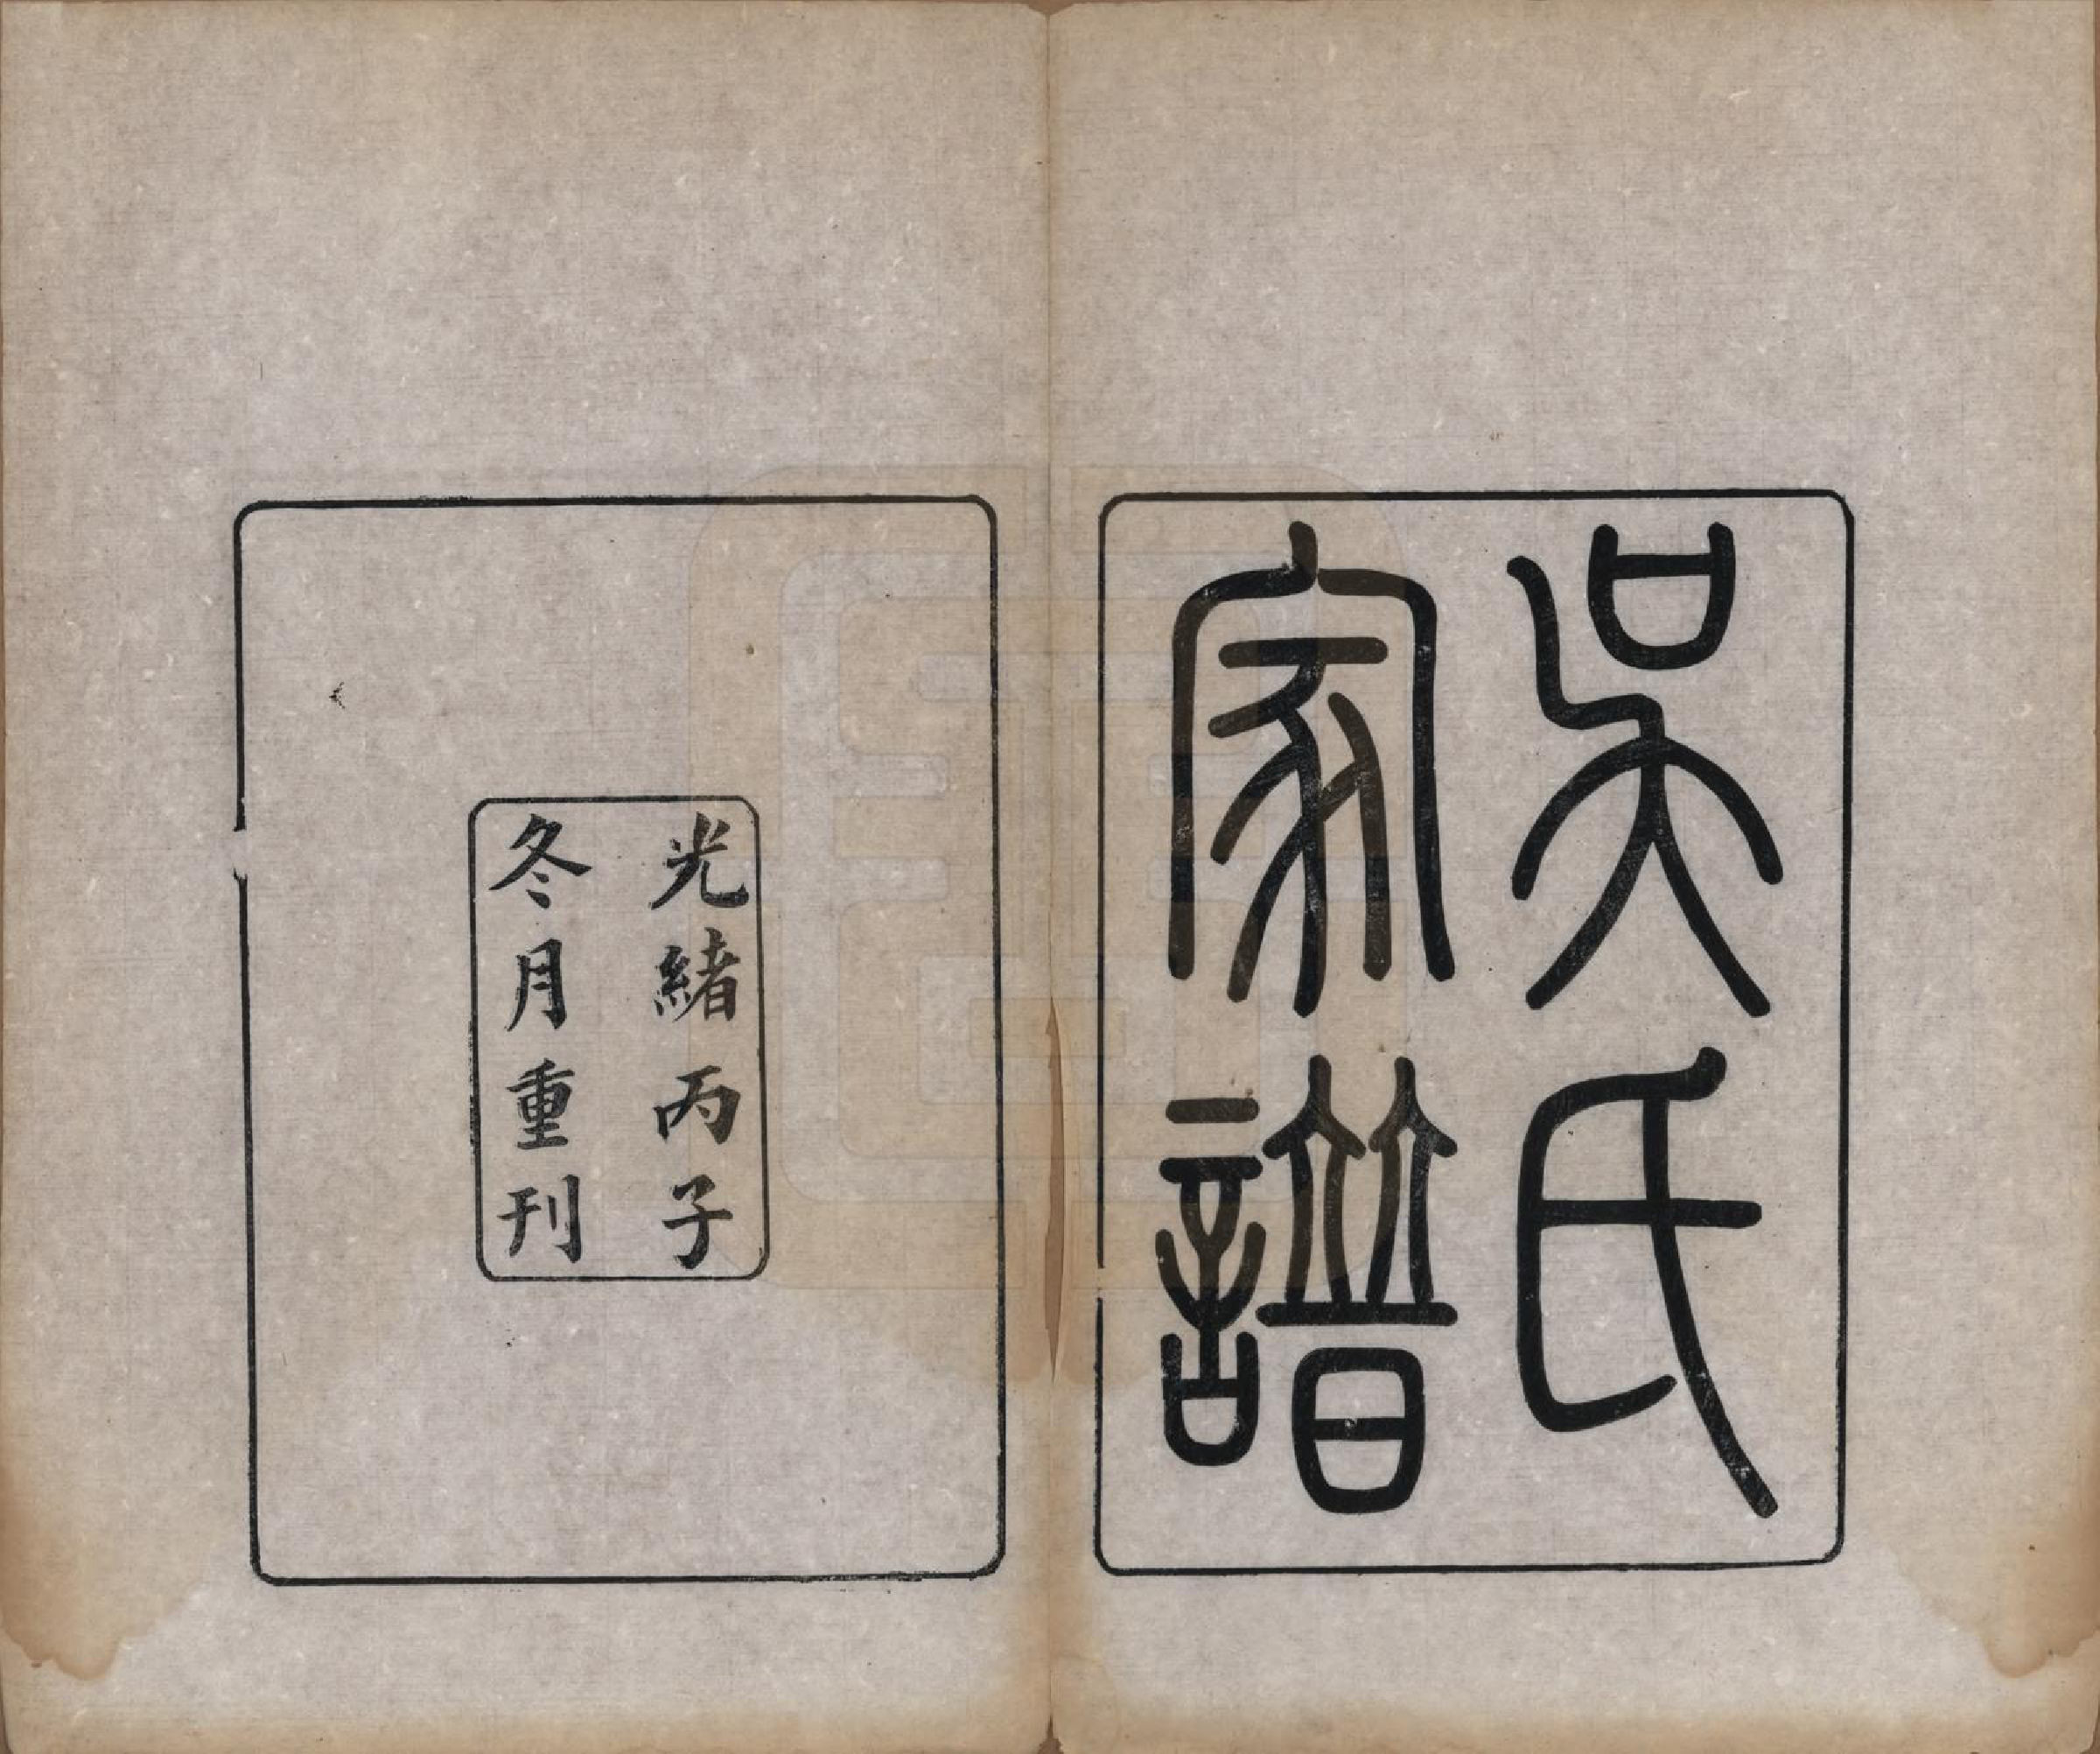 吳氏
家譜
光緒丙子
冬月重刊